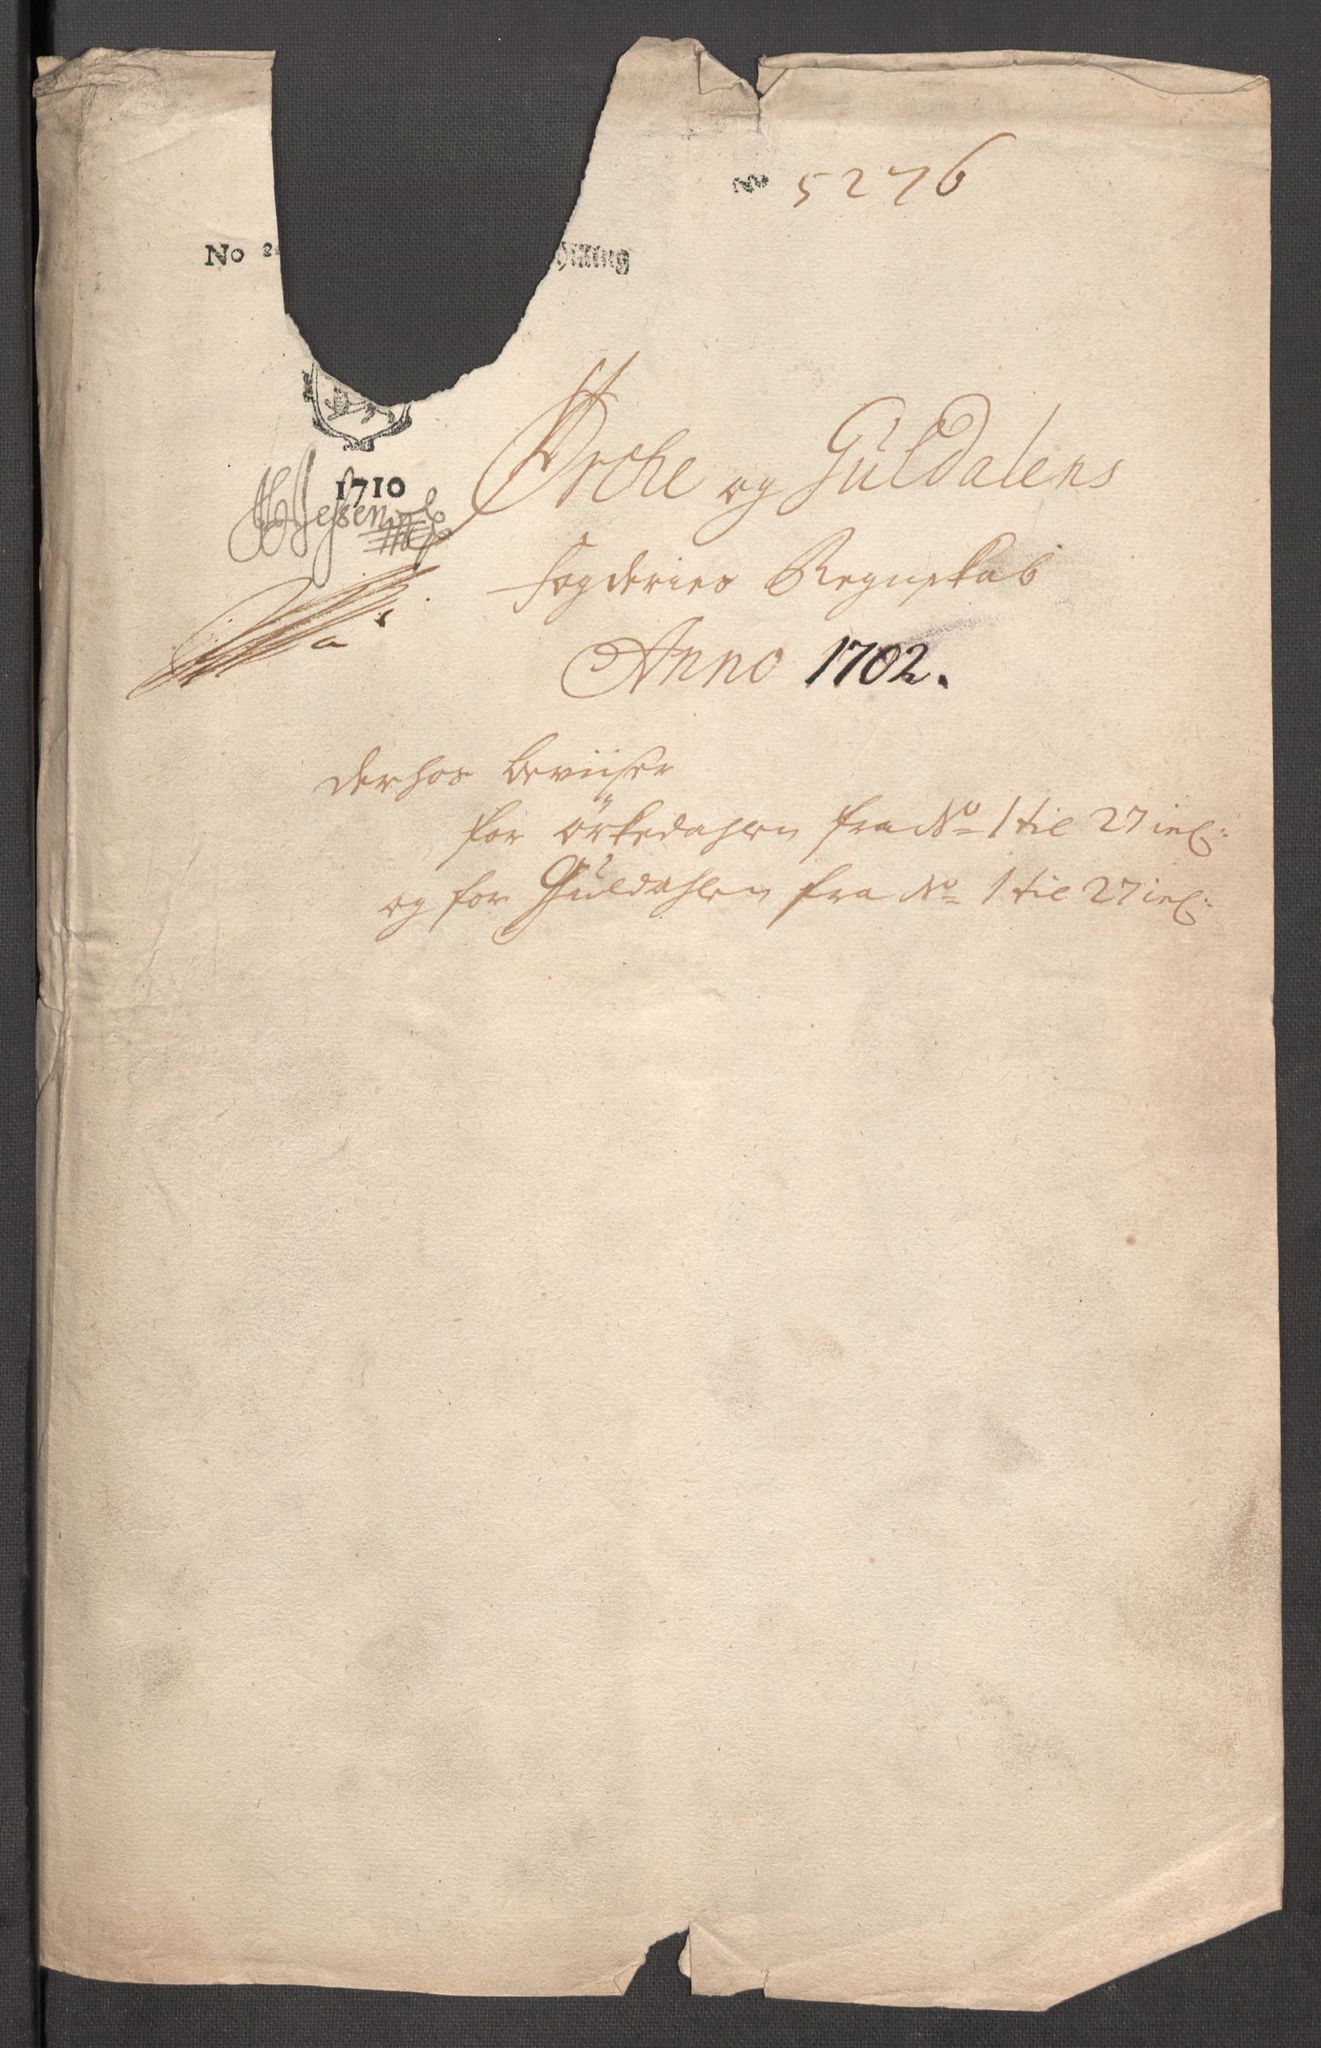 No 5276
No 2 [...]illing
1710
HWessen
Orche og Guldalens
Fogderies Regnskab
Anno 1702.
derhos beviiser
for örkedahlen fra No 1 til 27 incl:
og for Guldahlen fra No 1 til 27 incl: